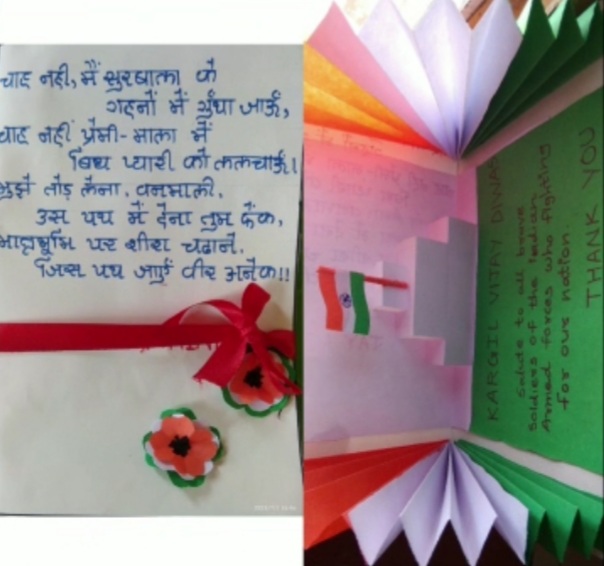 चाह नहीं, मैं सुरबाला के
गहनों में गुँथा जाऊँ,
चाह नहीं प्रेमी-माला में
बिंध प्यारी को ललचाऊँ!
मुझे तोड़ लेना, वनमाली,
उस पथ में देना तुम फेंक,
मातृभूमि पर शीश चढ़ाने,
जिस पथ जाएँ वीर अनेक!!
KARGIL VIJAY DIWAS
Salute to all brave
Soldiers of the Indian
Armed forces who fighting
for our nation.
THANK YOU